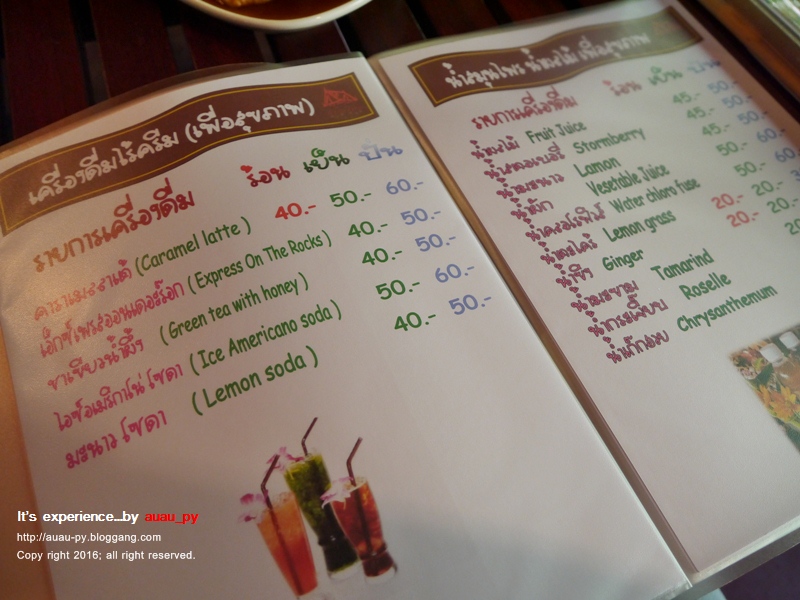 เครื่องดื่มไร้ครีม (เพื่อสุขภาพ)
รายการเครื่องดื่ม ร้อน เย็น ปั่น
คาราเมลลาเต้ (Caramel latte) 40.- 50.- 60.-
เอ็กซ์เพรสออนเดอะร็อก (Express On The Rocks) 40.- 50.-
ชาเขียวน้ำผึ้ง (Green tea with honey) 40.- 50.-
ไอซ์อเมริกาโน่ โซดา (Ice Americano soda) 50.- 60.-
มะนาว โซดา (Lemon soda) 40.- 50.-
น้ำสมุนไพร น้ำผลไม้ เพื่อสุขภาพ
รายการเครื่องดื่ม ร้อน เย็น ปั่น
น้ำผลไม้ Fruit Juice 45.- 50.-
น้ำสตอเบอรี่ Stormberry 45.- 50.-
น้ำมะนาว Lamon 45.- 50.-
น้ำผัก Vesetable Juice 50.- 60.-
น้ำคลอโรฟิลล์ Water chloro fuse 50.- 60.-
น้ำตะไคร้ Lemon grass 20.- 20.-
น้ำขิง Ginger 20.- 20.-
น้ำมะขาม Tamarind
น้ำกระเจี๊ยบ Roselle
น้ำเก๊กฮวย Chrysanthemum
It's experience...by auau_py
http://auau-py.bloggang.com
Copy right 2016; all right reserved.